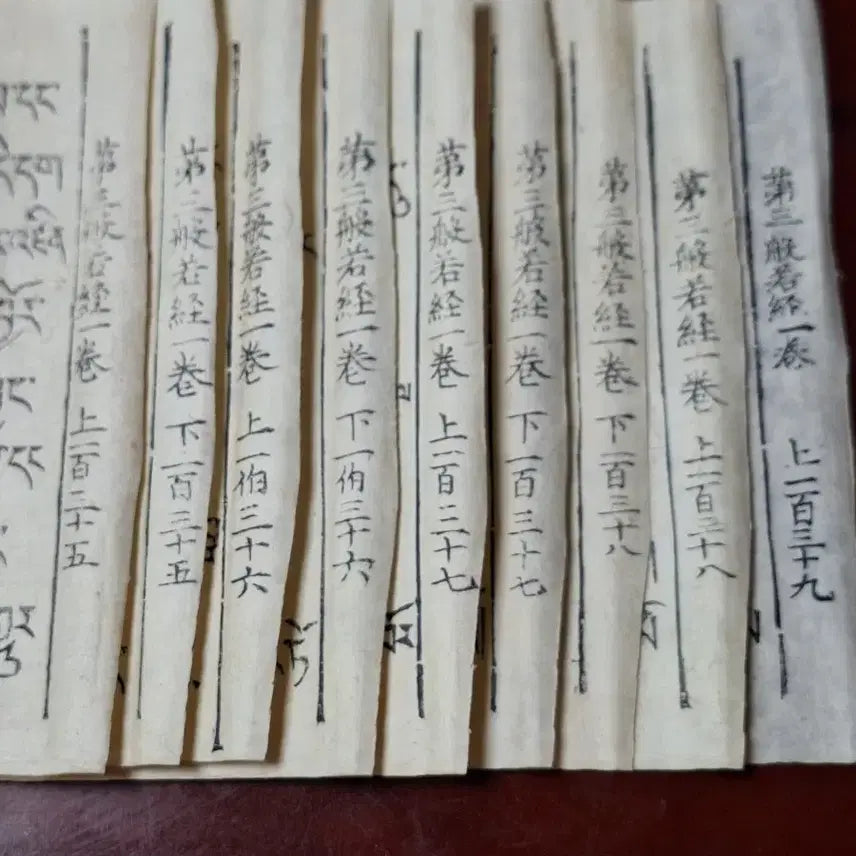 第三般若経一卷 上一百三十五
第三般若経一卷 下一百三十五
第三般若経一卷 上一伯三十六
第三般若経一卷 下一伯三十六
第三般若経一卷 上一百三十七
第三般若経一卷 下一百三十七
第三般若経一卷 下一百三十八
第三般若経一卷 上一百三十八
第三般若経一卷 上一百三十九